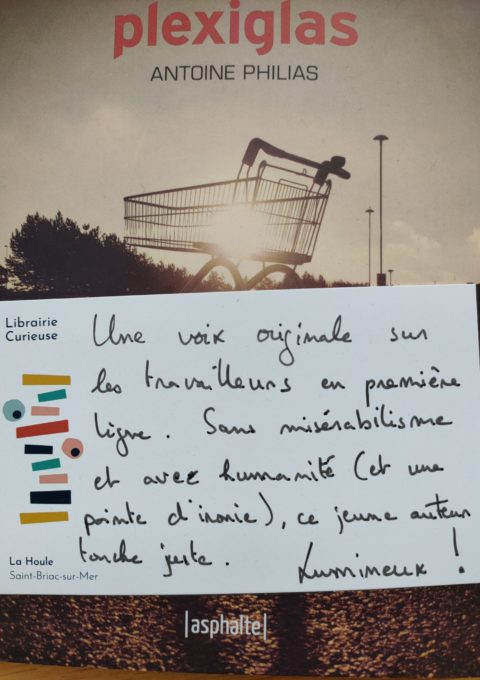 plexiglas
ANTOINE PHILIAS
Librairie
Curieuse
Une voix originale sur
les travailleurs en première
ligne. Sans misérabilisme
et avec humanité (et une
pointe d'ironie), ce jeune auteur
touche juste. Lumineux !
La Houle
Saint-Briac-sur-Mer
|asphalte|